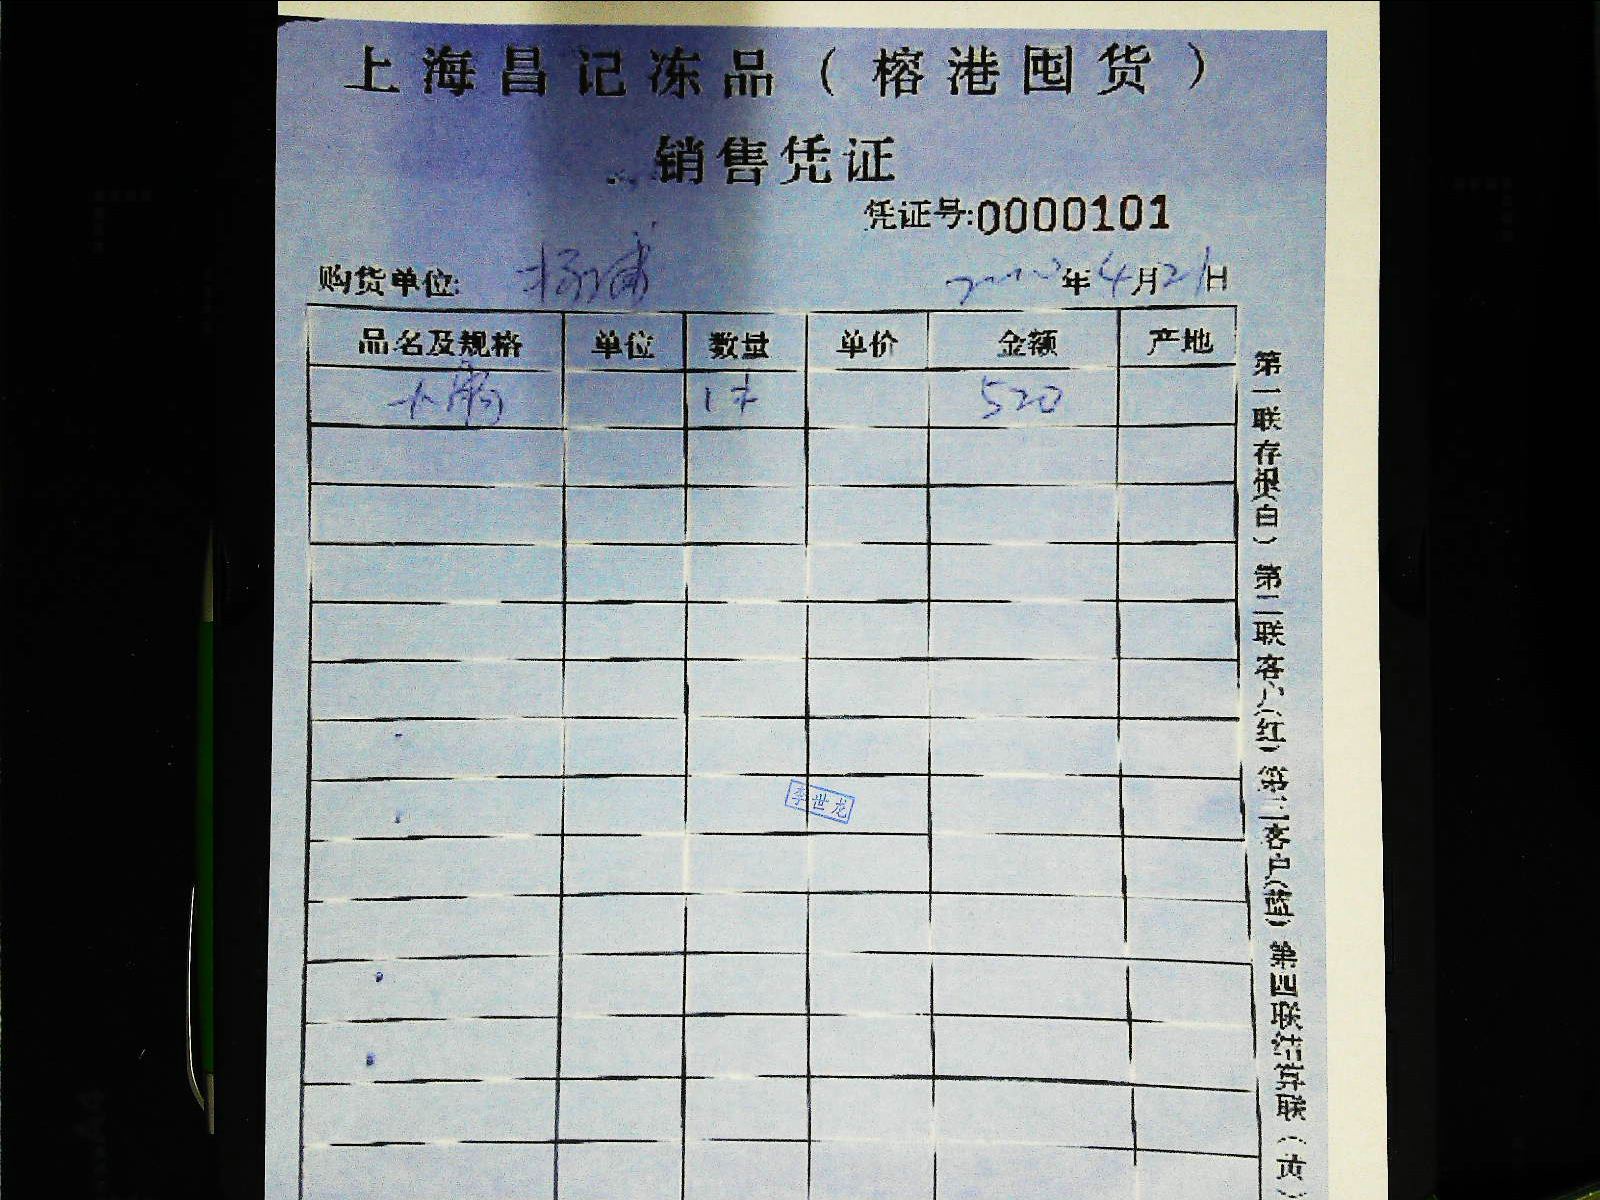 上海昌记冻品（榕港囤货）
销售凭证
凭证号:0000101
购货单位: 杨浦 年4月21日
品名及规格 单位 数量 单价 金额 产地
1件 520
李世龙
第一联存根(白) 第二联客户(红) 第三客户(蓝) 第四联结算联(黄)